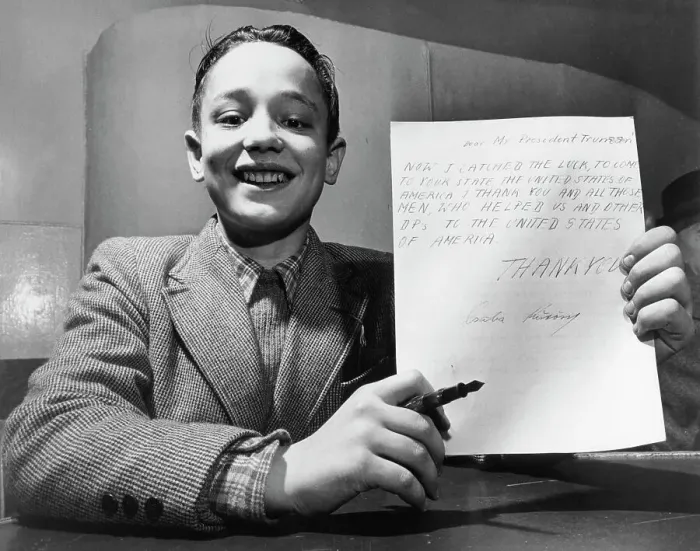 Dear Mr President Truman!
NOW I CATCHED THE LUCK, TO COME
TO YOUR STATE THE UNITED STATES OF
AMERICA. I THANK YOU AND ALL THOSE
MEN, WHO HELPED US AND OTHER
DPs TO THE UNITED STATES
OF AMERIIA.
THANK YOU
Csaba